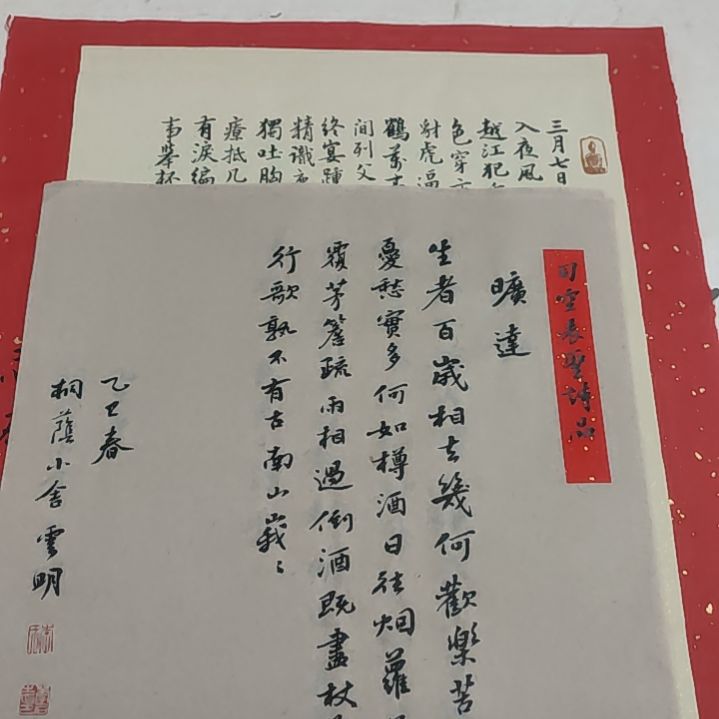 三月七日
入夜風
越江犯
色穿
射虎逼
鶴
間列父
終宴踵
精識
獨吐胸
療抵几
有淚編
舉杯
司空表聖詩品
曠達
生者百歲相去幾何歡樂苦
憂愁實多何如樽酒日往烟蘿
覆茅簷疏雨相過倒酒既盡杖
行歌孰不有古南山峩〻
乙巳春
桐蔭小舍雲明